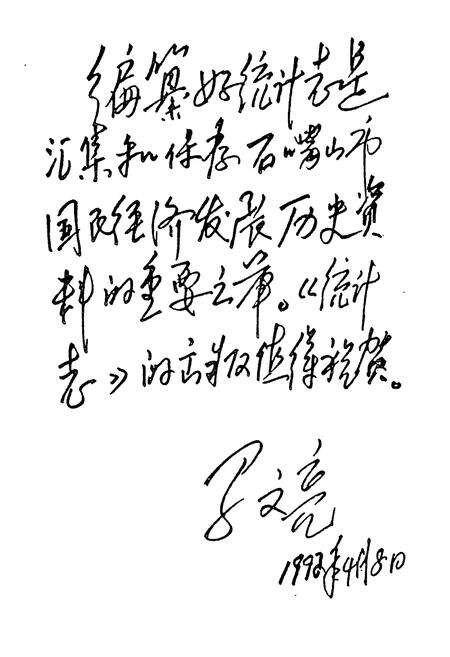 编纂好统计志是
汇集和保存石嘴山市
国民经济发展历史资
料的重要之举。《统计
志》的出版值得祝贺。
文亮
199年4月8日